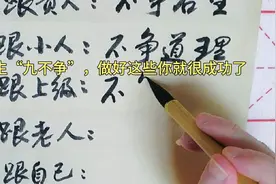 跟小人：不争道理
生“九不争”，做好这些你就很成功了
跟上级：不
跟老人：
跟自己：